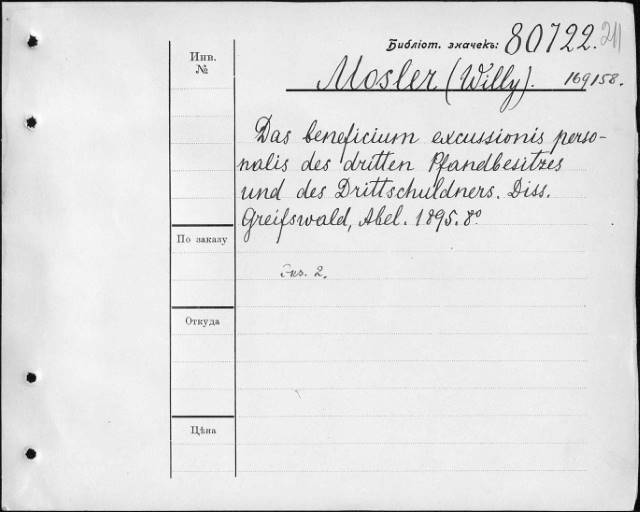 Библіот. значекъ: 80722. 211
Инв. №
Mosler (Willy). 169158.
Das beneficium excussionis perso-
nalis des dritten Pfandbesitzes
und des Drittschuldners. Diss.
Greifswald, Abel. 1895. 8°
По заказу
экз. 2.
Откуда
Цѣна